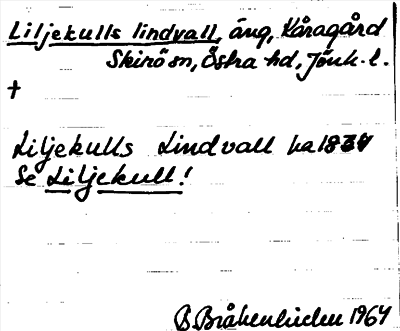 Liljekulls lindvall, äng, Kåragård
Skirö sn, Östra hd, Jönk. l.
†
Liljekulls Lindvall ha 1837
Se Liljekull!
B Bråkenhielm 1964